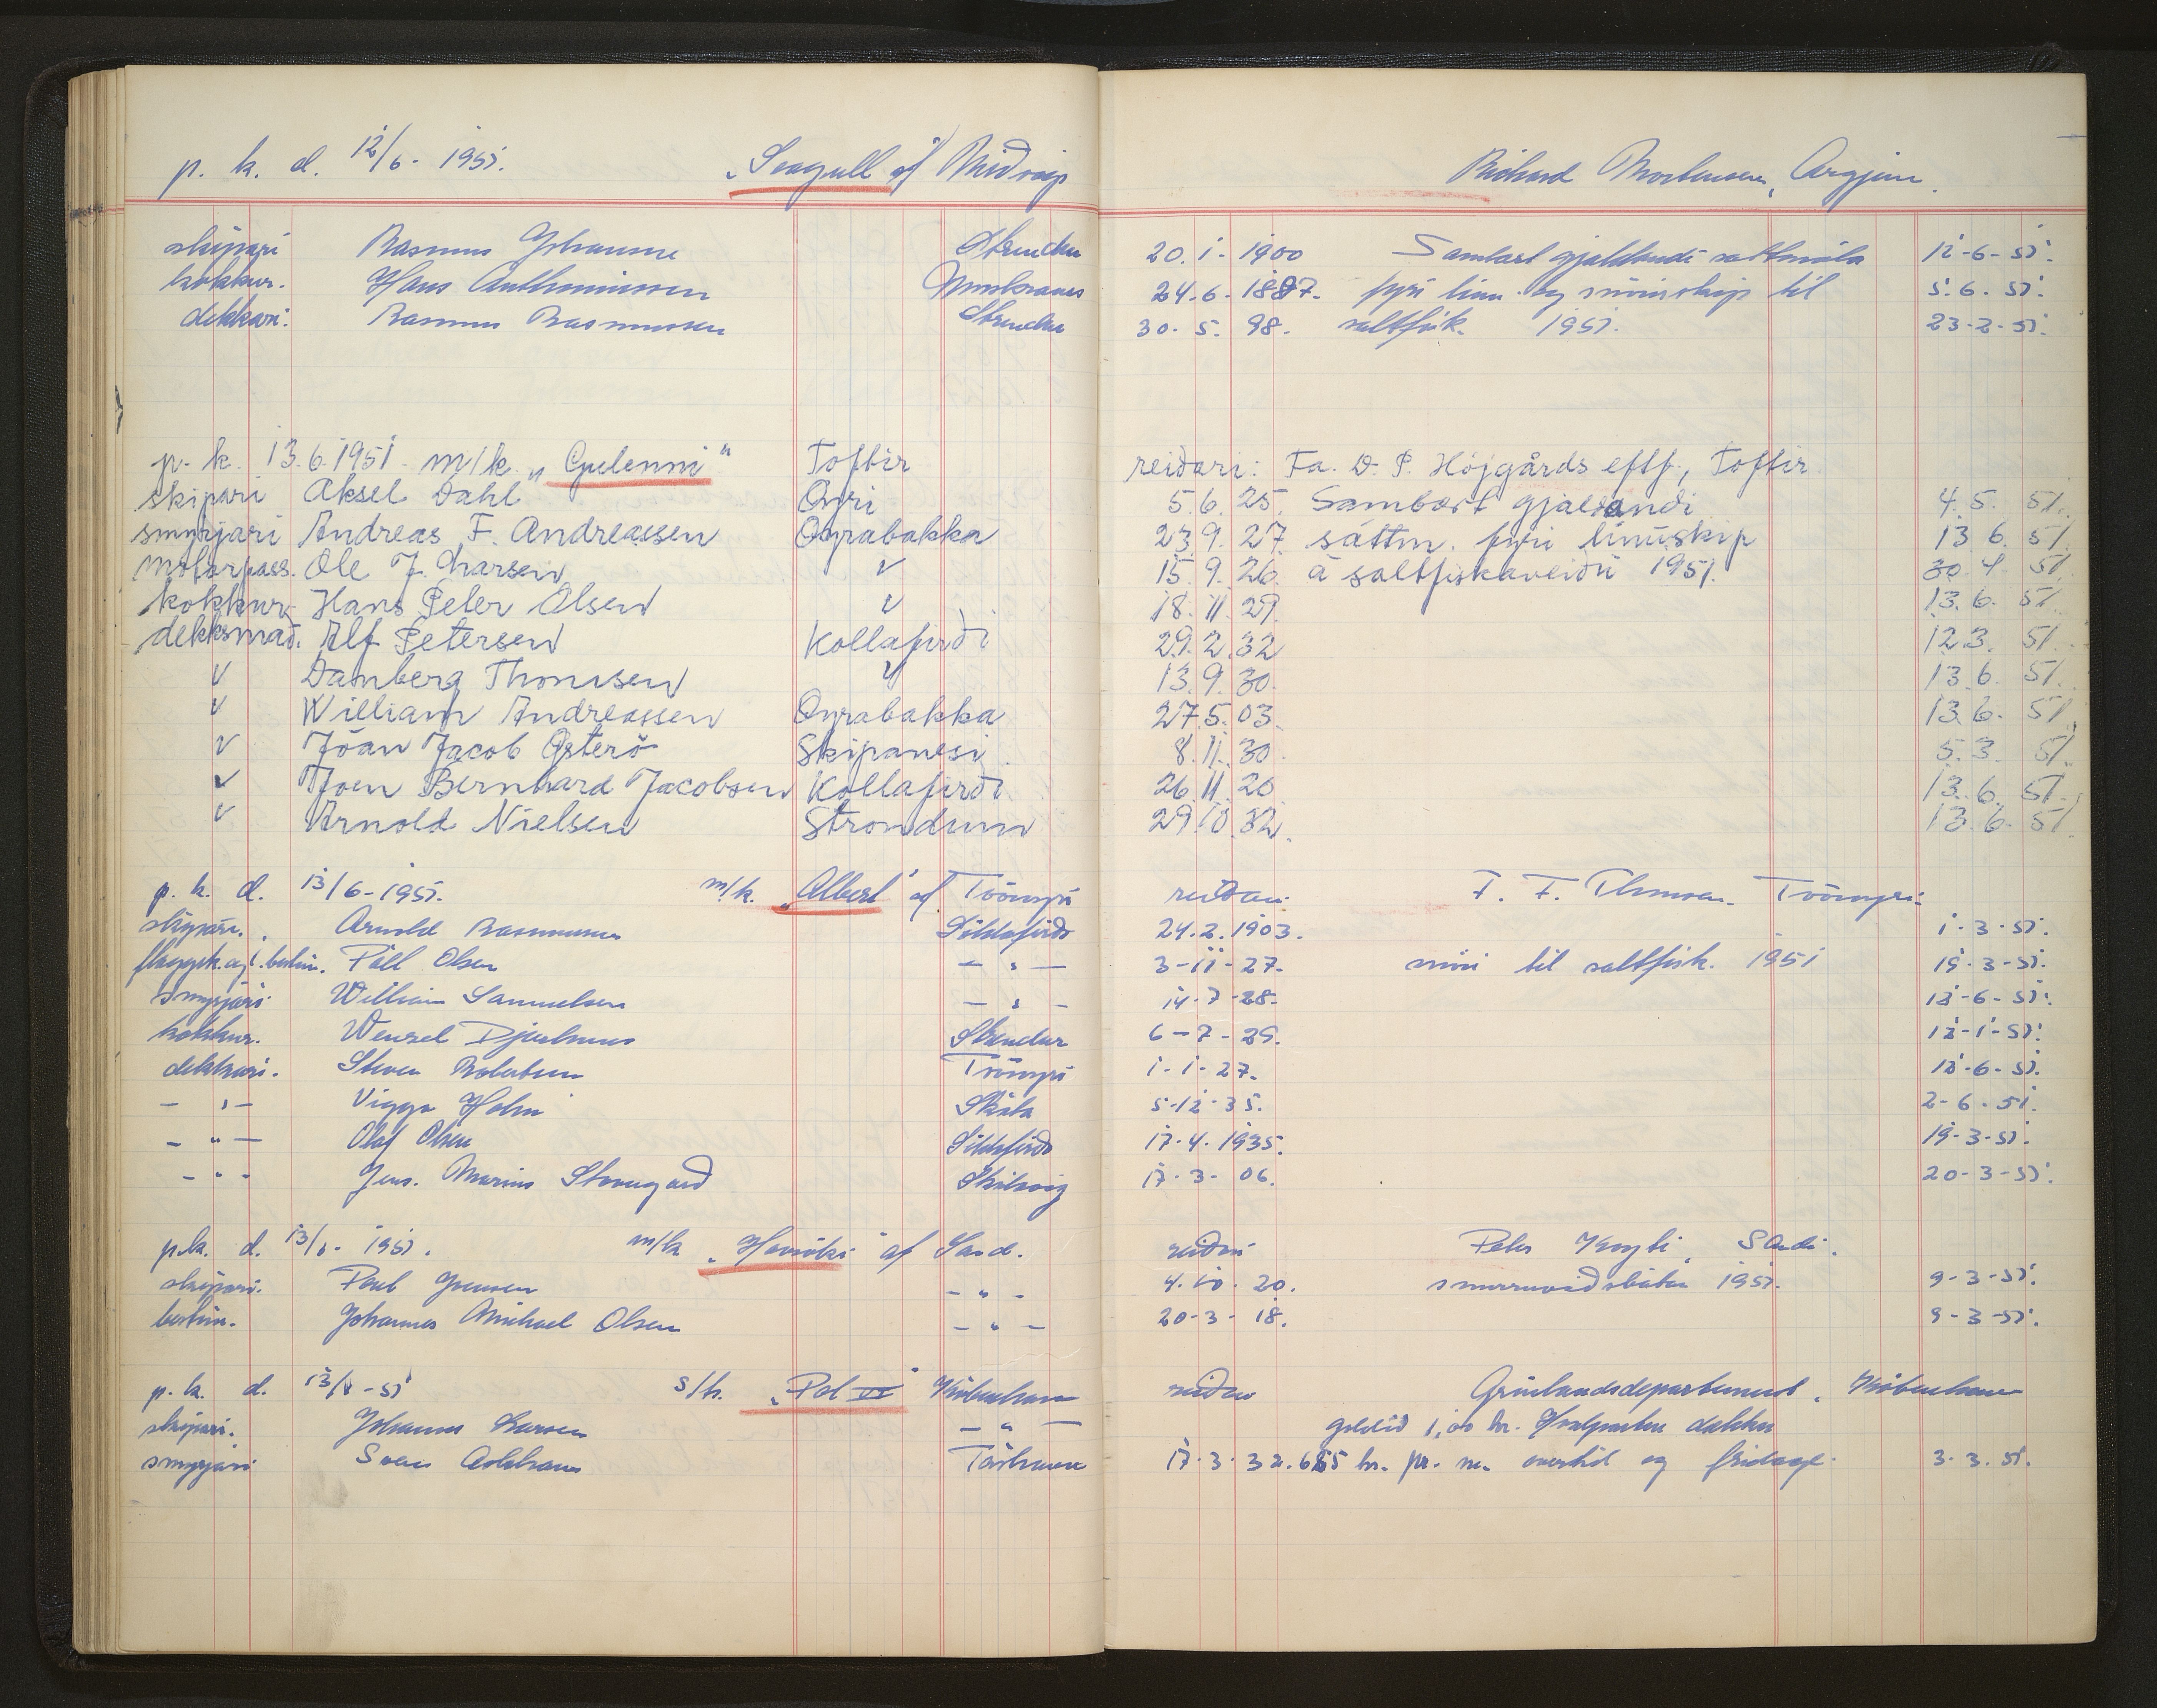 p. k. d. 12/6 - 1951. „Seagull" af Miðvág Richard Mortensen, Argjum.
skipari Rasmus Johansen Strendur 20. 1 - 1900 Sambært gjaldandi sáttmála 12 - 6 - 51.
kokkur. Hans Anthoniussen 24. 6. 1887. fyri línu og snøriskip til 5. 6. 51.
dekkari. Rasmus Rasmussen Strendur 30. 5. 98. saltfisk. 1951. 23 - 2 - 51.
p. k. 13. 6. 1951 m/k „Gulenni" Toftir reiðari: Fa. D. P. Højgårds eftf., Toftir
skipari Aksel Dahl Oyri 5. 6. 25. Sambært gjaldandi 4. 5. 51.
smyrjari Andreas F. Andreassen Oyrabakka 23. 9. 27 sáttm. fyri línuskip 13 6. 51.
motorpass. Ole J. Larsen v 15. 9. 26. á saltfiskaveiðu 1951. 30. 4. 51.
kokkur Hans Peter Olsen v 18. 11 29. 13. 6. 51.
dekksmað. Alf Petersen Kollafirði 29. 2. 32 12. 3. 51.
v Damberg Thomsen v 13. 9. 30. 13. 6. 51.
v William Andreassen Oyrabakka 27. 5. 03. 13. 6. 51.
v Jóan Jacob Østerø Skipanesi. 8. 11. 30. 5. 3. 51.
v Joen Bernhard Jacobsen Kollafirði 26. 11. 20 13. 6. 51.
v Arnold Nielsen Strondum 29. 10. 32. 13. 6. 51.
p. k. d. 13/6 - 1951. m/k. „Albert" af Tvøroyri reiðari F. F. Thomsen. Tvøroyri.
skipari. Arnold Rasmussen 24. 2. 1903. 1 - 3 - 51.
Páll Olsen — " — 3 - 11 - 27. snøri til saltfisk. 1951 19 - 3 - 51.
smyrjari William Samuelsen — " — 14 - 7 - 28. 12 - 6 - 51.
kokkur. Wenzel Djurhuus Strendur 6 - 7 - 29. 12 - 1 - 51.
dekkari. Steven Robertsen Tvøroyri 1 - 1 - 27. 12 - 6 - 51.
— " — Viggo Holm Skála 5 - 12 - 35. 2 - 6 - 51.
— " — Olaf Olsen 17 - 4. 1935. 19 - 3 - 51.
— " — Jens. Marius 17 - 3 - 06. 20 - 3 - 51.
p. k. d. 13/6 - 1951. m/k af Sand. reiðari Peter Sandi.
skipari. Poul Jensen — " — 4. 10. 20. snurruvaðsbátur 1951. 9 - 3 - 51.
bestm. Johannes Michael Olsen — " — 20 - 3 - 18. 9 - 3 - 51.
p. k. d. 13/6 - 51 s/k. „Pol VI" København reiðari Grønlandsdepartement, København
skipari. Johannes Larsen — " — goldið 1,00 kr.
smyrjari Tórshavn 17. 3. 32. kr. pr. overtíð og fridage. 3. 3. 51.